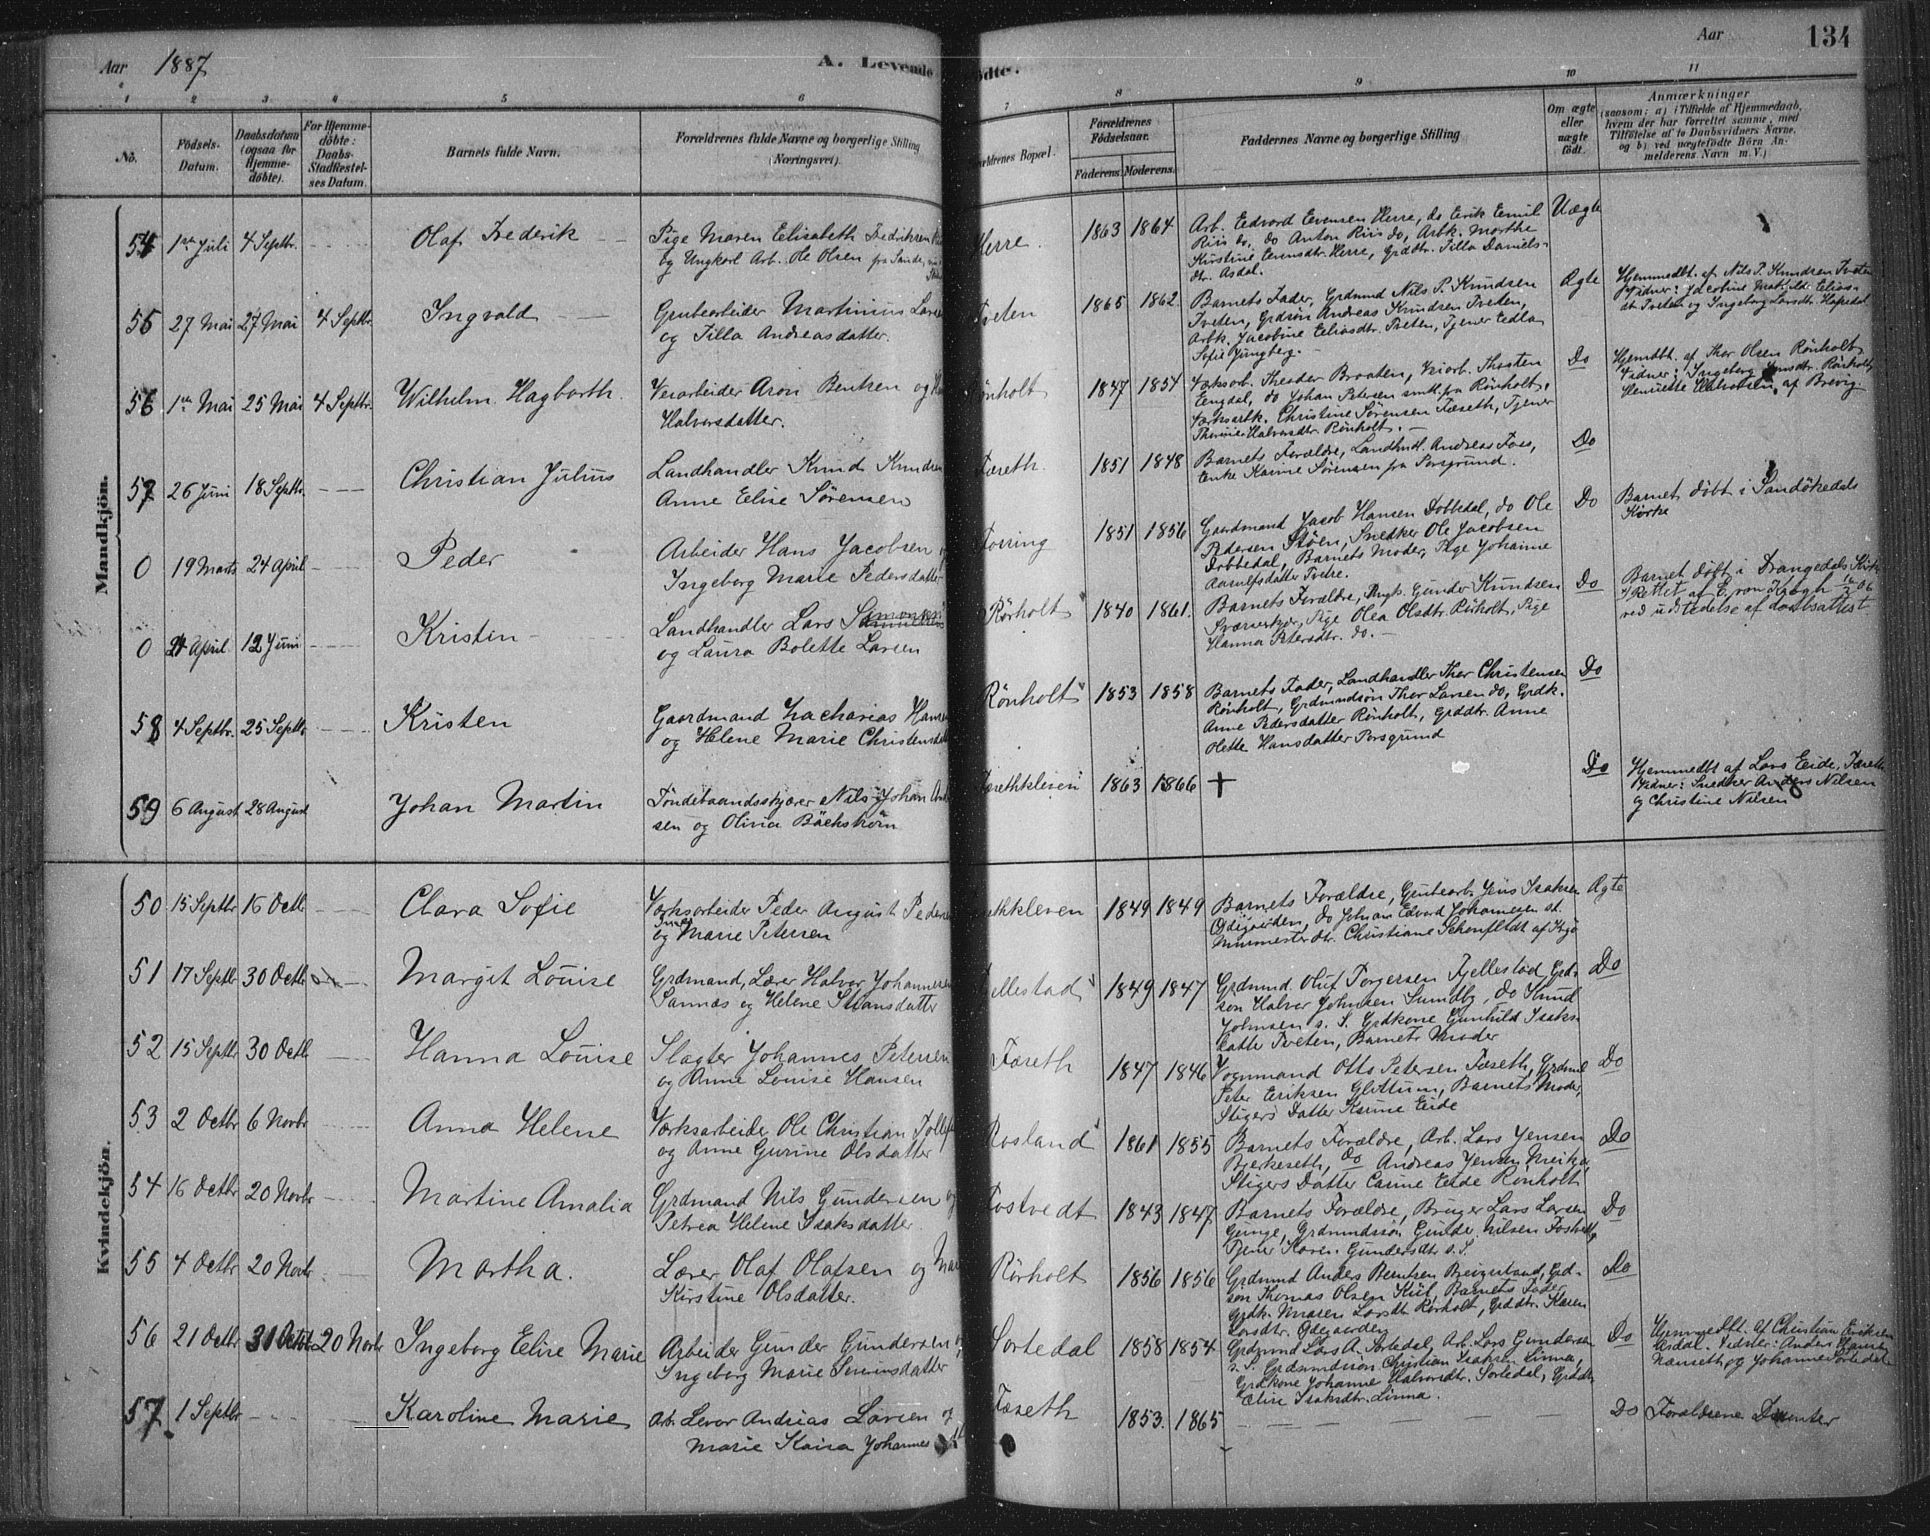 Aar 1887
A. Levende
ødte.
Aar
134
1 2 3 4 5 6 7 8 9 10 11
No. Födsels-Datum. Daabsdatum (ogsaa for Hjemmedöbte). For Hjemmedöbte: Daabs-Stadfæstelses Datum. Barnets fulde Navn. Forældrenes fulde Navne og borgerlige Stilling (Næringsvei).
Forældrenes Födselsaar. Faderens. Moderens. Faddernes Navne og borgerlige Stilling Om ægte eller uægte födt. Anmærkninger (saasom: a) i Tilfælde af Hjemmedaab, hvem der har forrettet samme, med Tilföielse af to Daabsvidners Navne, og b) ved uægtefödte Börn Anmelderens Navn m. V.)
Mandkjön.
54 1ste Juli 4 Septbr. Olaf Frederik Pige Maren Elisabeth Fredriksen
og Ungkarl Arb. Ole Olsen fra Sande
Herre. 1863 1864 Arb. Edvard Evensen Herre, do Eerik Emil
Riis do, do Anton Riis do, Arbk. Marthe
Kirstine Evensdtr. Herre, Grddtr. Tilla Daniels-
dtr. Asdal. Uægte
55 27 Mai 27 Mai 4 Septbr. Ingvald Grubearbeider Martinius Lars
og Tilla Andreasdatter.
Tveten 1865 1862. Barnets Fader, Grdmnd Nils P. Knudsen
Tveten, Grdsön Andreas Knudsen Tveten,
Arbk. Jacobine Eliasdtr. Tveten, Tjener Edla
Sofie Ljungberg. Ægte Hjemmedbt. af Nils P. Knudsen Tveten
Vidner: Jacobine Mathilde Elias-
dtr Tveten og Ingeborg Larsdt. Hafsdal
56 1ste Mai 25 Mai 4 Septbr. Wilhelm Hagbarth. Værarbeider Aron Bentsen og
Halvorsdatter.
Rönholt 1847 1854 Værksarb. Theodor Braaten, Veiarb. Thorsten
Engdal, do Johan Petersen smtl. fra Rönholt,
Værksarbk. Christine Sörensen Fæseth, Tjener
Thomine Halvorsdtr. Rönholt. Do Hjemdbt. af Thor Olsen Rönholt
Vidner: Ingeborg Knudsdtr. Rönholt,
Henriette Halvorsen af Brevig
57 26 Juni 18 Septbr. Christian Julius Landhandler Knud Knudsen
Anne Elise Sörensen
Fæseth. 1851 1848 Barnets Forældre, Landhndl. Andreas Foss,
Enke Karine Sörensen fra Porsgrund. Do
0 19 Marts 24 April Peder Arbeider Hans Jacobsen
Ingeborg Marie Pedersdatter
Torring 1851 1856 Gaardmand Jacob Hansen Dobbedal, do Ole
Pedersen Stöen, Snedker Ole Jacobsen
Dobbedal, Barnets Moder, Pige Johanne
Aarnulfsdatter Tvetre. Do Barnet döbt i Sandökedals
Kirke
0 24 April. 12 Juni Kristin Landhandler Lars
og Laura Bolette Larsen
Rörholt 1840 1861. Barnets Forældre, Ungk. Gunder Knudsen
Pige Olea Olsdtr. Rörholt, Pige
Hanna Petersdtr. do. Do Barnet döbt i Drangedals Kirke
Rettet af E. von Krogh
ved udstedelse af daabsattest
58 4 Septbr. 25 Septbr Kristen Gaardmand Zacharias Hansen
og Helene Marie Christensd
Rönholt 1853 1858 Barnets Fader, Landhandler Thor Christensen
Rönholt, Grdmndsön Thor Larsen do, Grdk.
Anne Pedersdatter Rönholt, Grddtr. Anne
Olette Hansdatter Porsgrund Do
59 6 August 28 August Johan Martin Töndebaandsskjærer Nils Johan And
sen og Olivia Bäckström
Fæsethkleven 1863 1866 + Do Hjemmedbt af Lars Eide, Fæseth
Vidner: Snedker Anders Nilsen
og Christine Nilsen
Kvindekjön.
50 15 Septbr 16 Octbr Clara Sofie Værksarbeider Peder August Peders
og Marie Petersen
ethkleven 1849 1849 Barnets Forældre, Grubearb. Jens Isaksen
Ödegaarden, do Johan Edvard Johannesen st.
Murmester dtr. Christiane Schenfeldt af Kgö Ægte
51 17 Septbr 30 Octbr Margit Louise Grdmand, Lærer Halvor Johannesen
Sannæs og Helene Stiansdatter
Fjellestad 1849 1847 Grdmnd. Oluf Torgersen Fjellestad, Grd-
sön Halvor Johnsen Sundby, do Knud
Johnsen s. S. Grdkone Gunhild Isaks-
datter Tveten, Barnets Moder Do
52 15 Septbr 30 Octb Hanna Louise Slagter Johannes Petersen
og Anne Louise Hansen
Fæseth 1847 1846 Vognmand Otto Petersen Fæseth, Grdmd
Peter Eriksen Glittum, Barnets Moder,
Stigers Datter Karine Eide Do
53 2 Octbr 6 Novbr Anna Helene Værksarbeider Ole Christian Tollef
og Anne Gurine Olsdatter
Rosland 1861 1855 Barnets Forældre, Arb. Lars Jensen
Bjerkeseth, do Andreas Jensen
Stigers Datter Carine Eide Rönholt Do
54 16 Octbr 20 Novbr Martine Amalia Grdmand Nils Gundersen og
Petrea Helene Isaksdatter
Tostvedt 1843 1847 Barnets Forældre, Bruger Lars Larsen
Gunge, Grdmndssön Gunder Nilsen Tostvedt,
Tjener Karen Gundersdtr s. S. Do
55 4 Octbr 20 Novbr Martha. Lærer Olaf Olafsen og
Kirstine Olsdatter.
Rörholt 1856 1856 Grdmnd Anders Berntsen Breigstrand, Grd-
sön Thomas Olsen Kiil, Barnets Fader
Grdk. Maren Larsdt. Rörholt, Grddtr. Karen
Larsdtr. Ödegaarden Do
56 21 Octbr 31 Octbr 20 Novbr Ingeborg Elise Marie Arbeider Gunder Gundersen
Ingeborg Marie Sveinsdatter
Sortedal 1858 1854 Grdmnd Lars A. Sortedal, Arb. Lars Gundersen
s. S. Grdmndssön Christian Isaksen Linna,
Grdkone Johanne Halvorsdtr. Sortedal, Grddtr
Elise Isaksdtr. Linna. Do Hjemmedbt. af Christian Eriksen
Asdal. Vidner: Anders Hansen
Næseth og Johanne Sortedal
57 1 Septbr Karoline Marie Arb. Levor Andreas Larsen og
Marie Kaisa Johannes
Fæseth 1853. 1865 Do Forældrene Dissenter